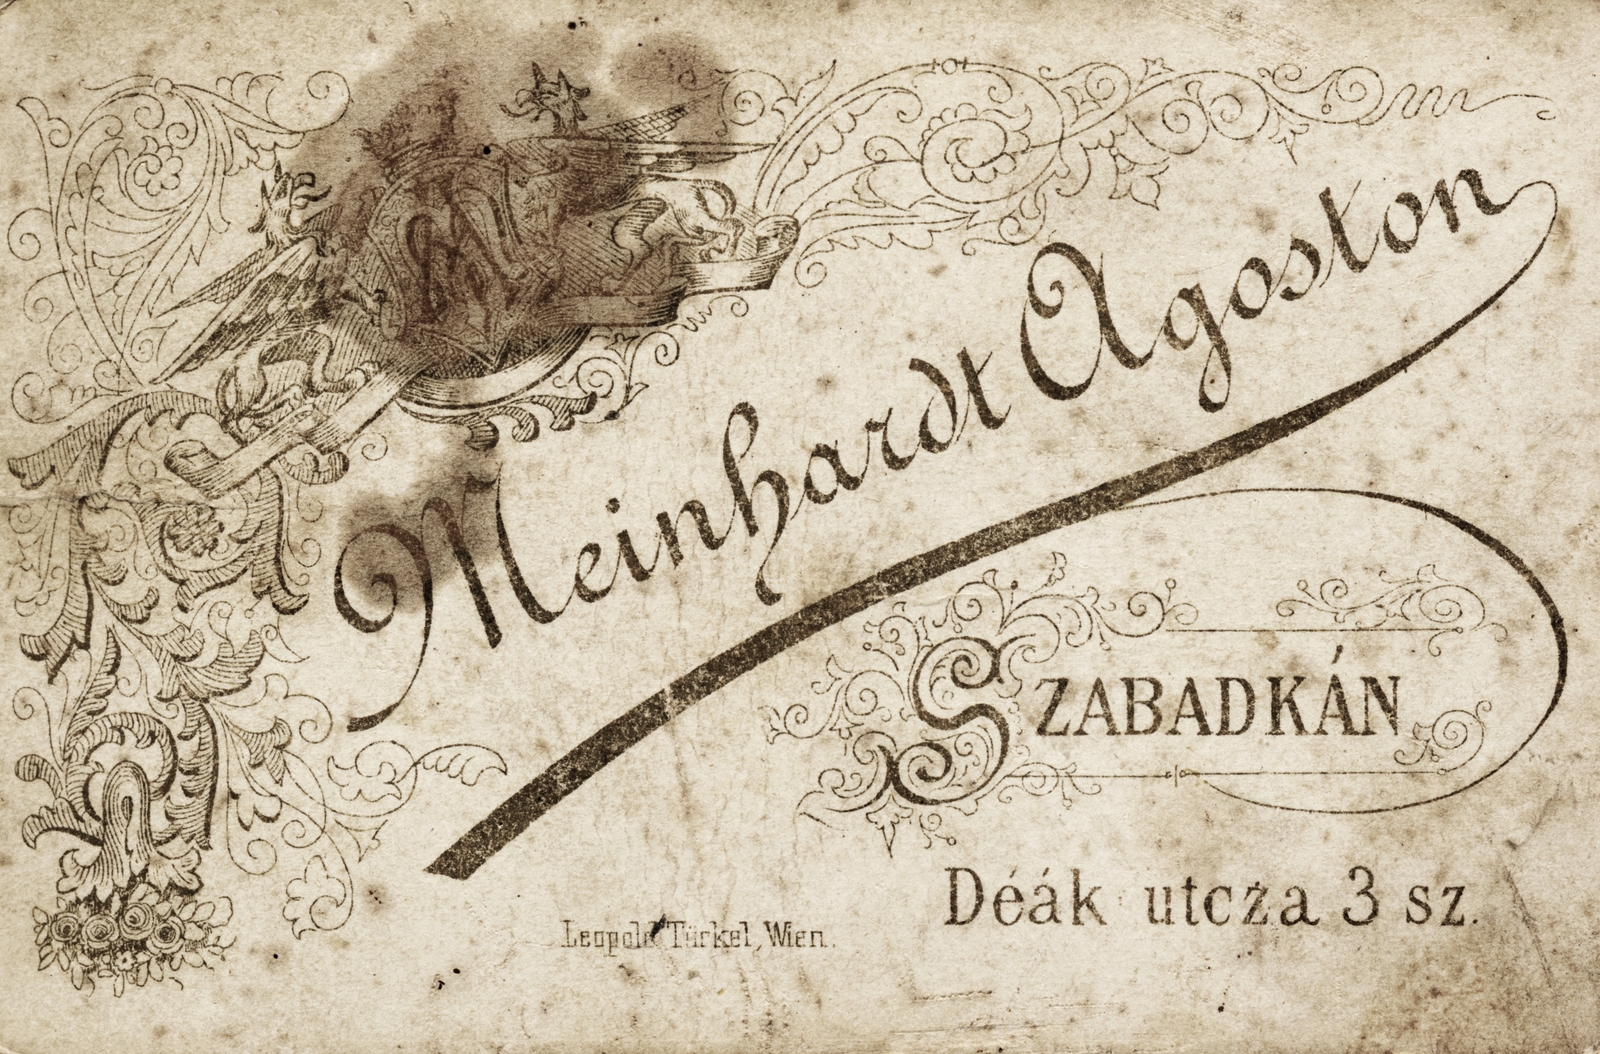 Meinhardt Agoston
SZABADKÁN
Déák utcza 3 sz.
Leopold Türkel, Wien.